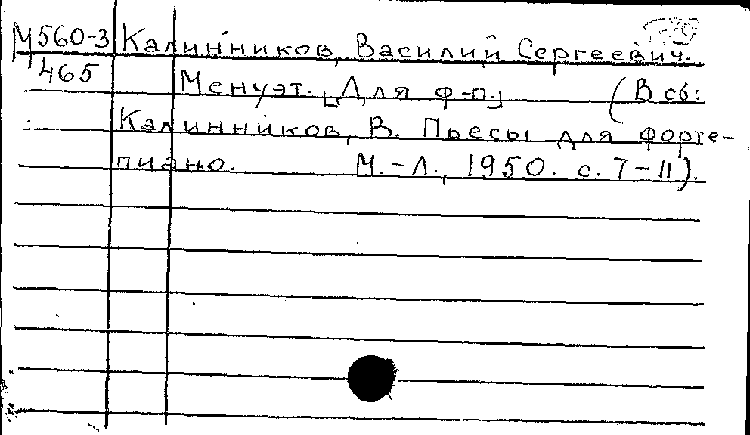 М560-3 Калинников, Василий Сергеевич.
465 Менуэт. [Для ф-п.] (В сб:
Калинников, В. Пьесы для форте-
пиано. М.-Л., 1950. с. 7-11).